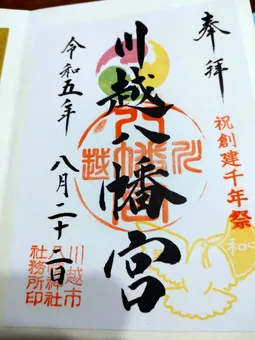 奉拝
祝創建千年祭
川越八幡宮
令和五年
八月二十一日
川越市
八幡神社
社務所印